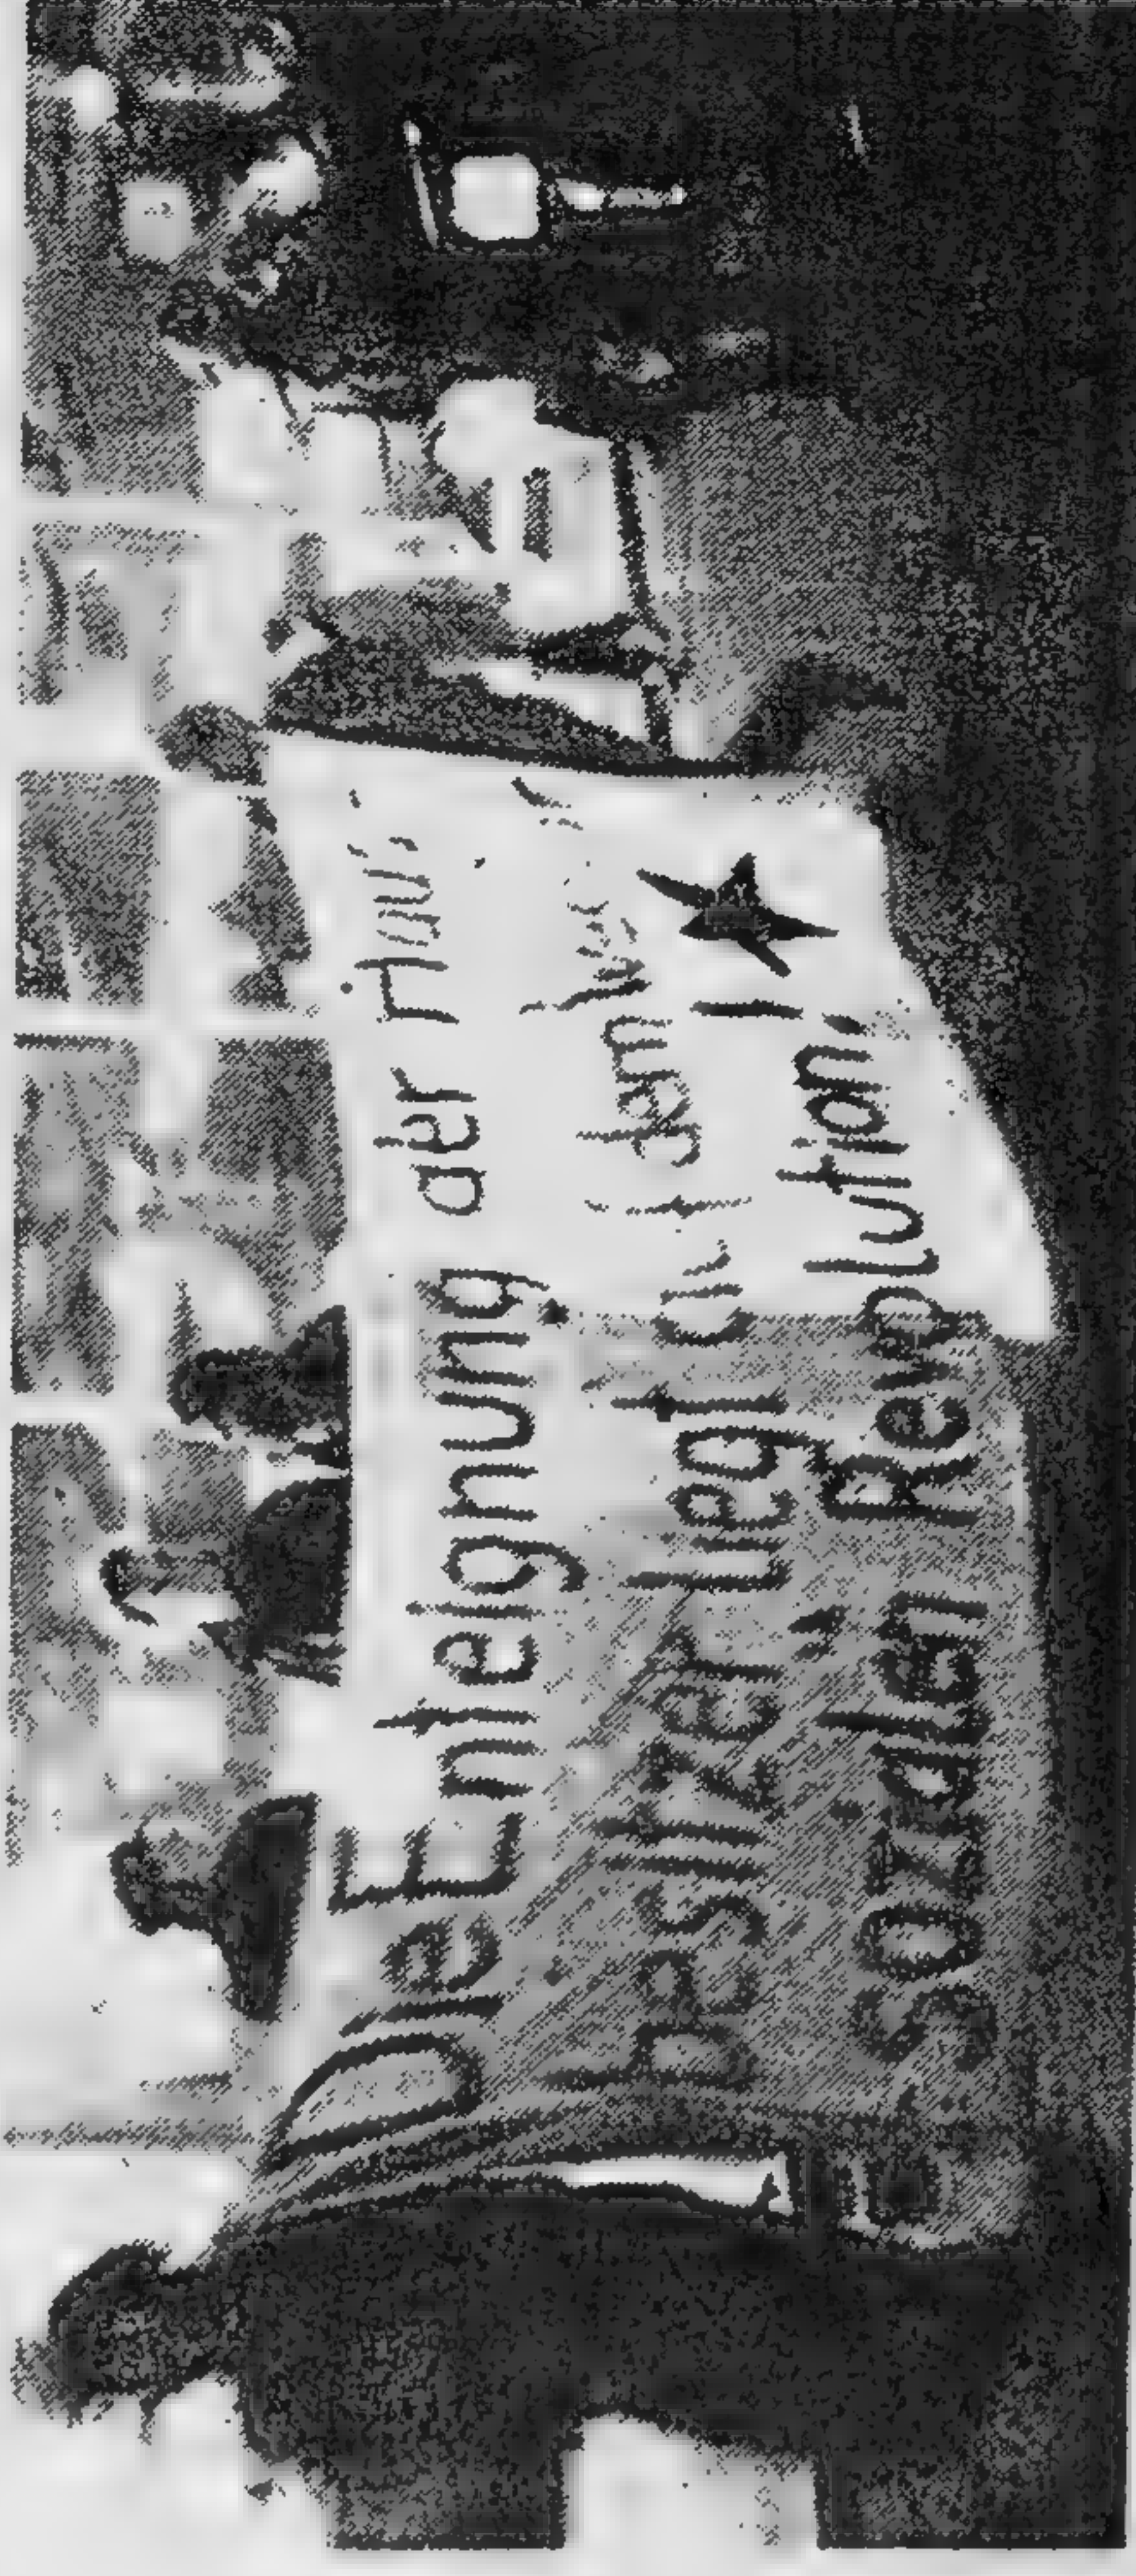 Die Enteignung der
besitzer liegt auf dem
sozialen Revolution!